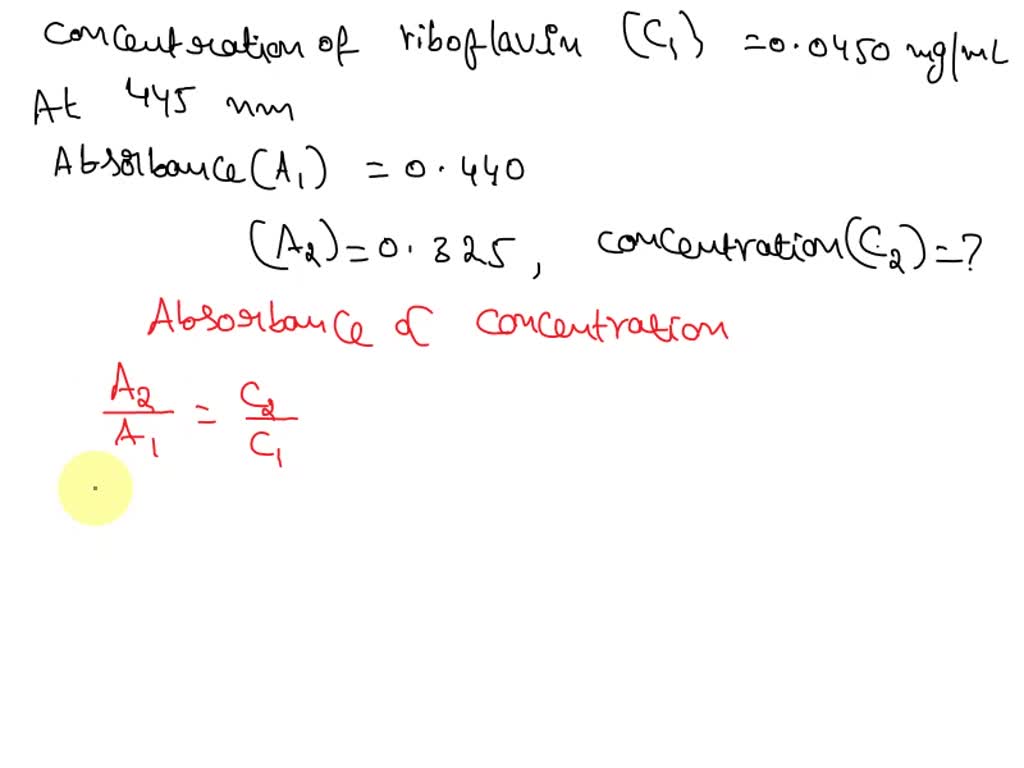 Concentration of riboflavin (C₁) = 0.0450 mg/mL
At 445 nm
Absorbance (A₁) = 0.440
(A₂) = 0.325, concentration (C₂) = ?
Absorbance ∝ concentration
A₂/A₁ = C₂/C₁